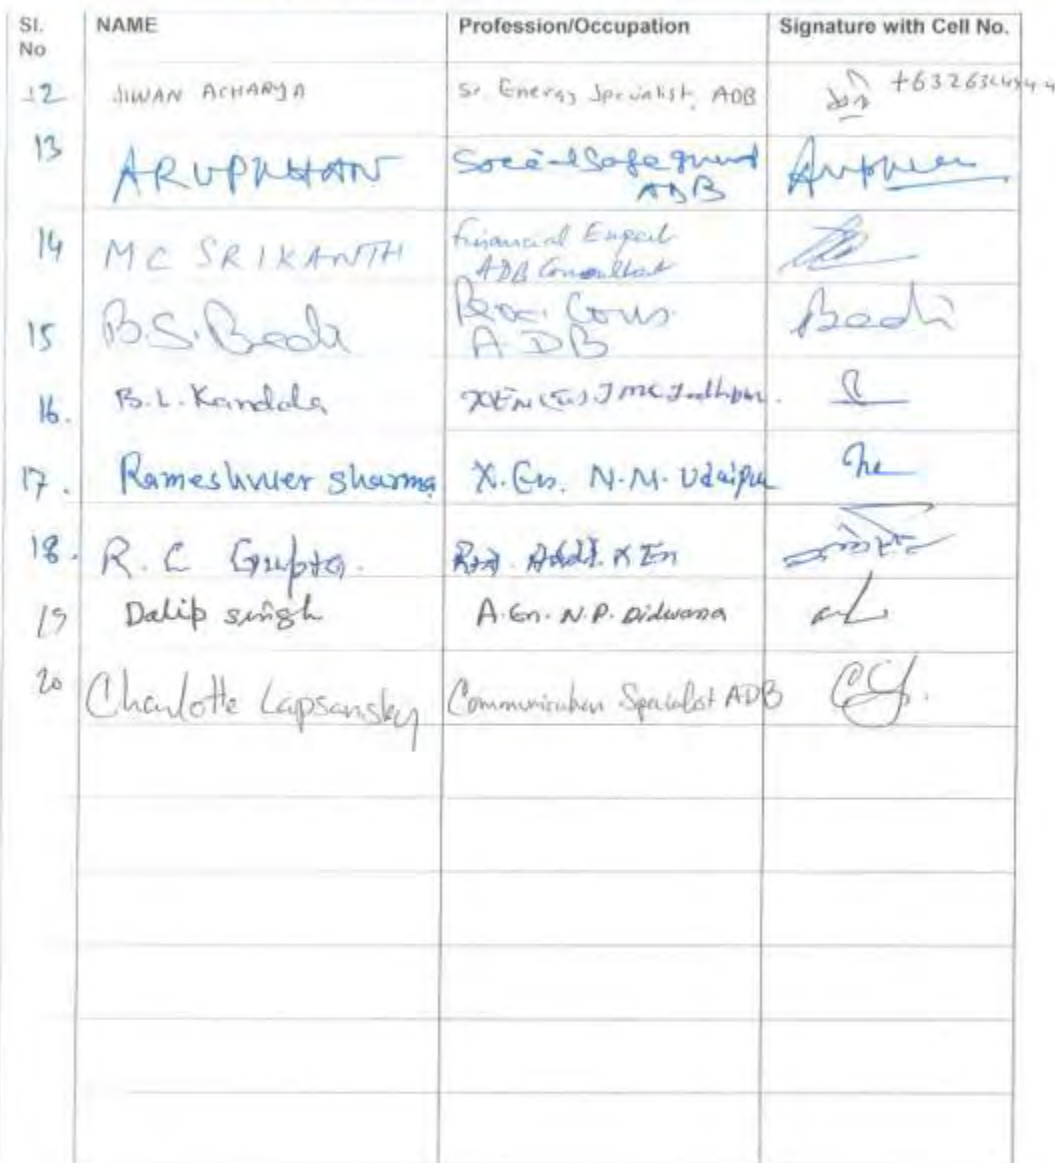 Sl. No NAME Profession/Occupation Signature with Cell No.
12 JIWAN ACHARYA Sr. Energy Specialist, ADB
13 ARUP KHAN Social Safeguard
ADB
14 MC SRIKANTH Financial Expert
ADB Consultant
15 B.S. Bedi Cons. Bedi
A D B
16. B.L. Kandala XEN
17. Rameshwer Sharma X.En. N.M. Udaipur
18. R. C Gupta. Addl. X En
19 Dalip singh A.En. N.P. Didwana
20 Charlotte Lapsansky Communication Specialist ADB